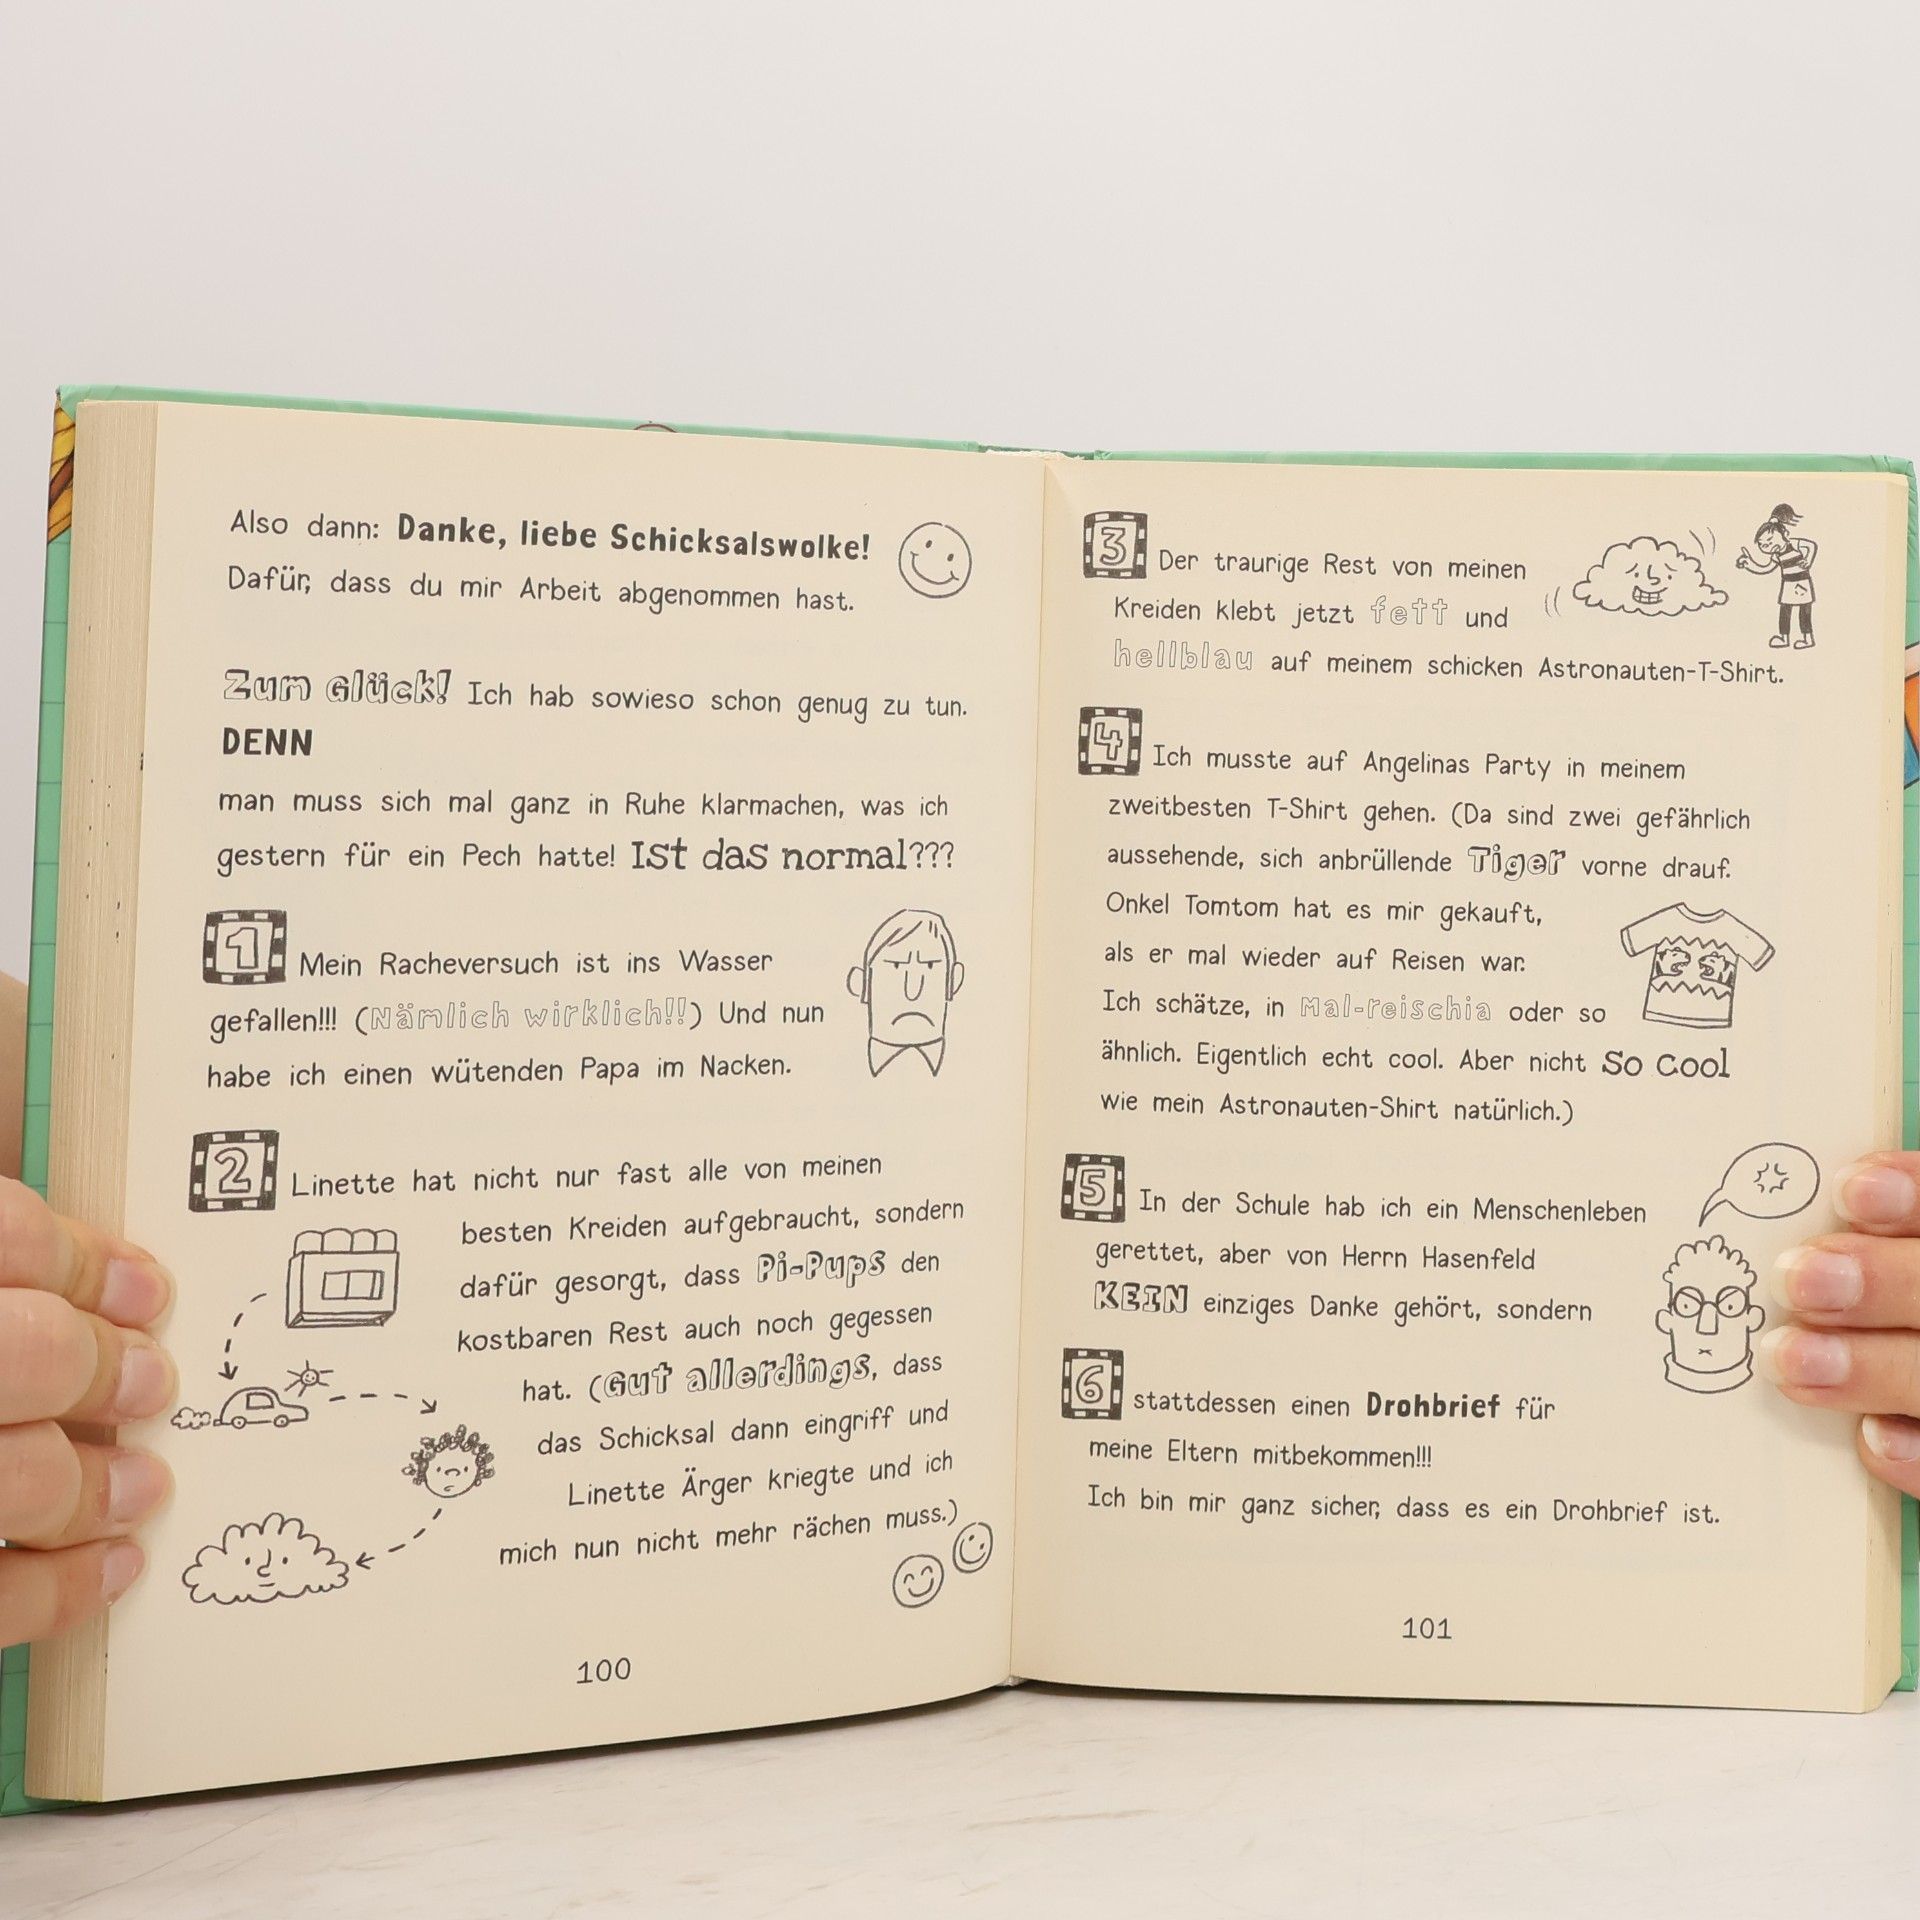 Also dann: Danke, liebe Schicksalswolke!
Dafür, dass du mir Arbeit abgenommen hast.
Zum Glück! Ich hab sowieso schon genug zu tun.
DENN
man muss sich mal ganz in Ruhe klarmachen, was ich
gestern für ein Pech hatte! Ist das normal???
1 Mein Racheversuch ist ins Wasser
gefallen!!! (Nämlich wirklich!!) Und nun
habe ich einen wütenden Papa im Nacken.
2 Linette hat nicht nur fast alle von meinen
besten Kreiden aufgebraucht, sondern
dafür gesorgt, dass Pi-Pups den
kostbaren Rest auch noch gegessen
hat. (Gut allerdings, dass
das Schicksal dann eingriff und
Linette Ärger kriegte und ich
mich nun nicht mehr rächen muss.)
100
3 Der traurige Rest von meinen
Kreiden klebt jetzt fett und
hellblau auf meinem schicken Astronauten-T-Shirt.
4 Ich musste auf Angelinas Party in meinem
zweitbesten T-Shirt gehen. (Da sind zwei gefährlich
aussehende, sich anbrüllende Tiger vorne drauf.
Onkel Tomtom hat es mir gekauft,
als er mal wieder auf Reisen war.
Ich schätze, in Mal-reischia oder so
ähnlich. Eigentlich echt cool. Aber nicht so cool
wie mein Astronauten-Shirt natürlich.)
5 In der Schule hab ich ein Menschenleben
gerettet, aber von Herrn Hasenfeld
KEIN einziges Danke gehört, sondern
6 stattdessen einen Drohbrief für
meine Eltern mitbekommen!!!
Ich bin mir ganz sicher, dass es ein Drohbrief ist.
101